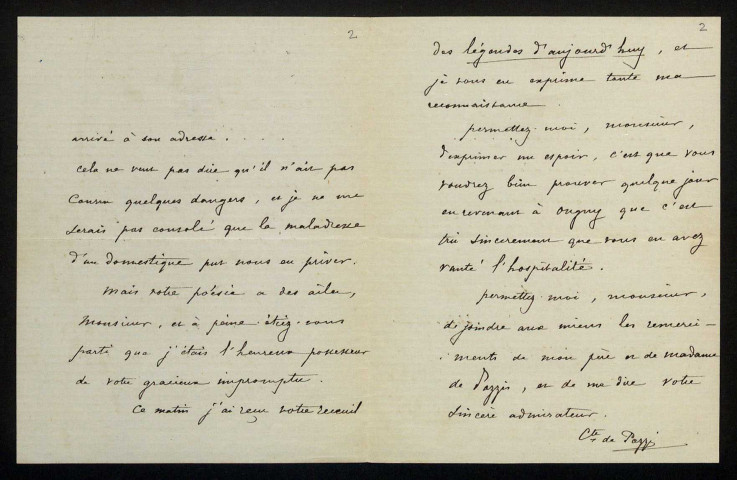 2
arrivé à son adresse. . . . .
cela ne veut pas dire qu'il n'ait pas
couru quelques dangers, et je ne me
serais pas consolé que la maladresse
d'un domestique put nous en priver.
Mais votre poésie a des ailes,
Monsieur, et à peine étiez-vous
parti que j'étais l'heureux possesseur
de votre gracieux impromptu.
Ce matin j'ai reçu votre recueil
2
des légendes d'aujourd'huy, et
je vous en exprime toute ma
reconnaissance
permettez-moi, monsieur,
d'exprimer un espoir, c'est que vous
voudrez bien prouver quelque jour
en revenant à Ougny que c'est
très sincèrement que vous en avez
vanté l'hospitalité.
permettez-moi, monsieur,
de joindre aux miens les remercî-
ments de mon père et de madame
de Pazzis, et de me dire votre
sincère admirateur.
Cte de Pazzis